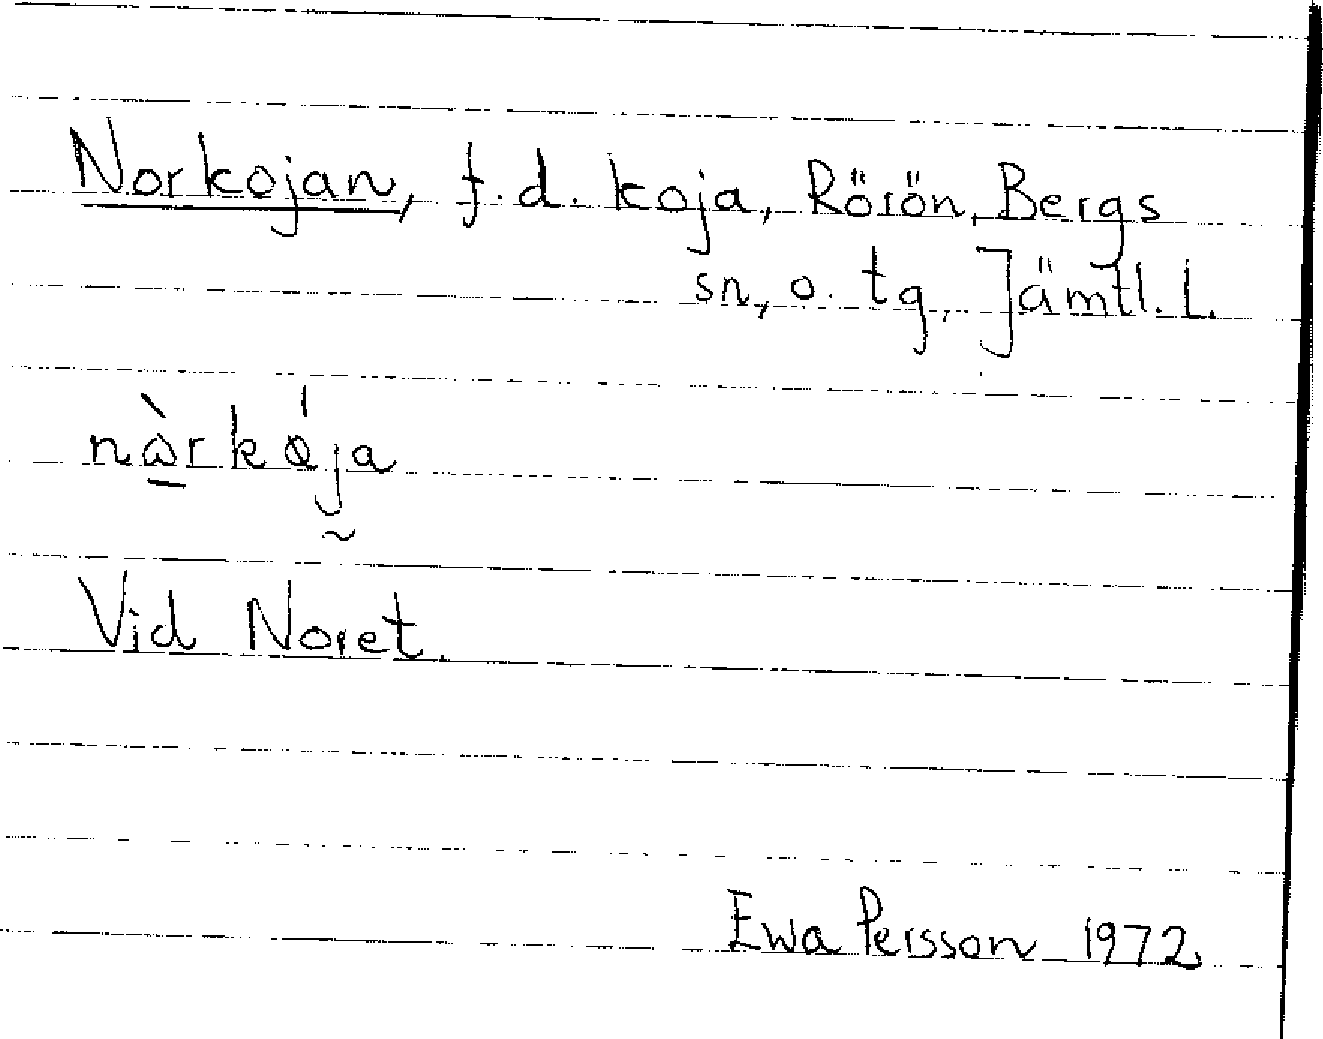 Norkojan, f.d. koja, Rörön, Bergs
sn, o. tg, Jämtl. l.
nὼ̱rkǿja̰
Vid Noret.
Ewa Persson 1972